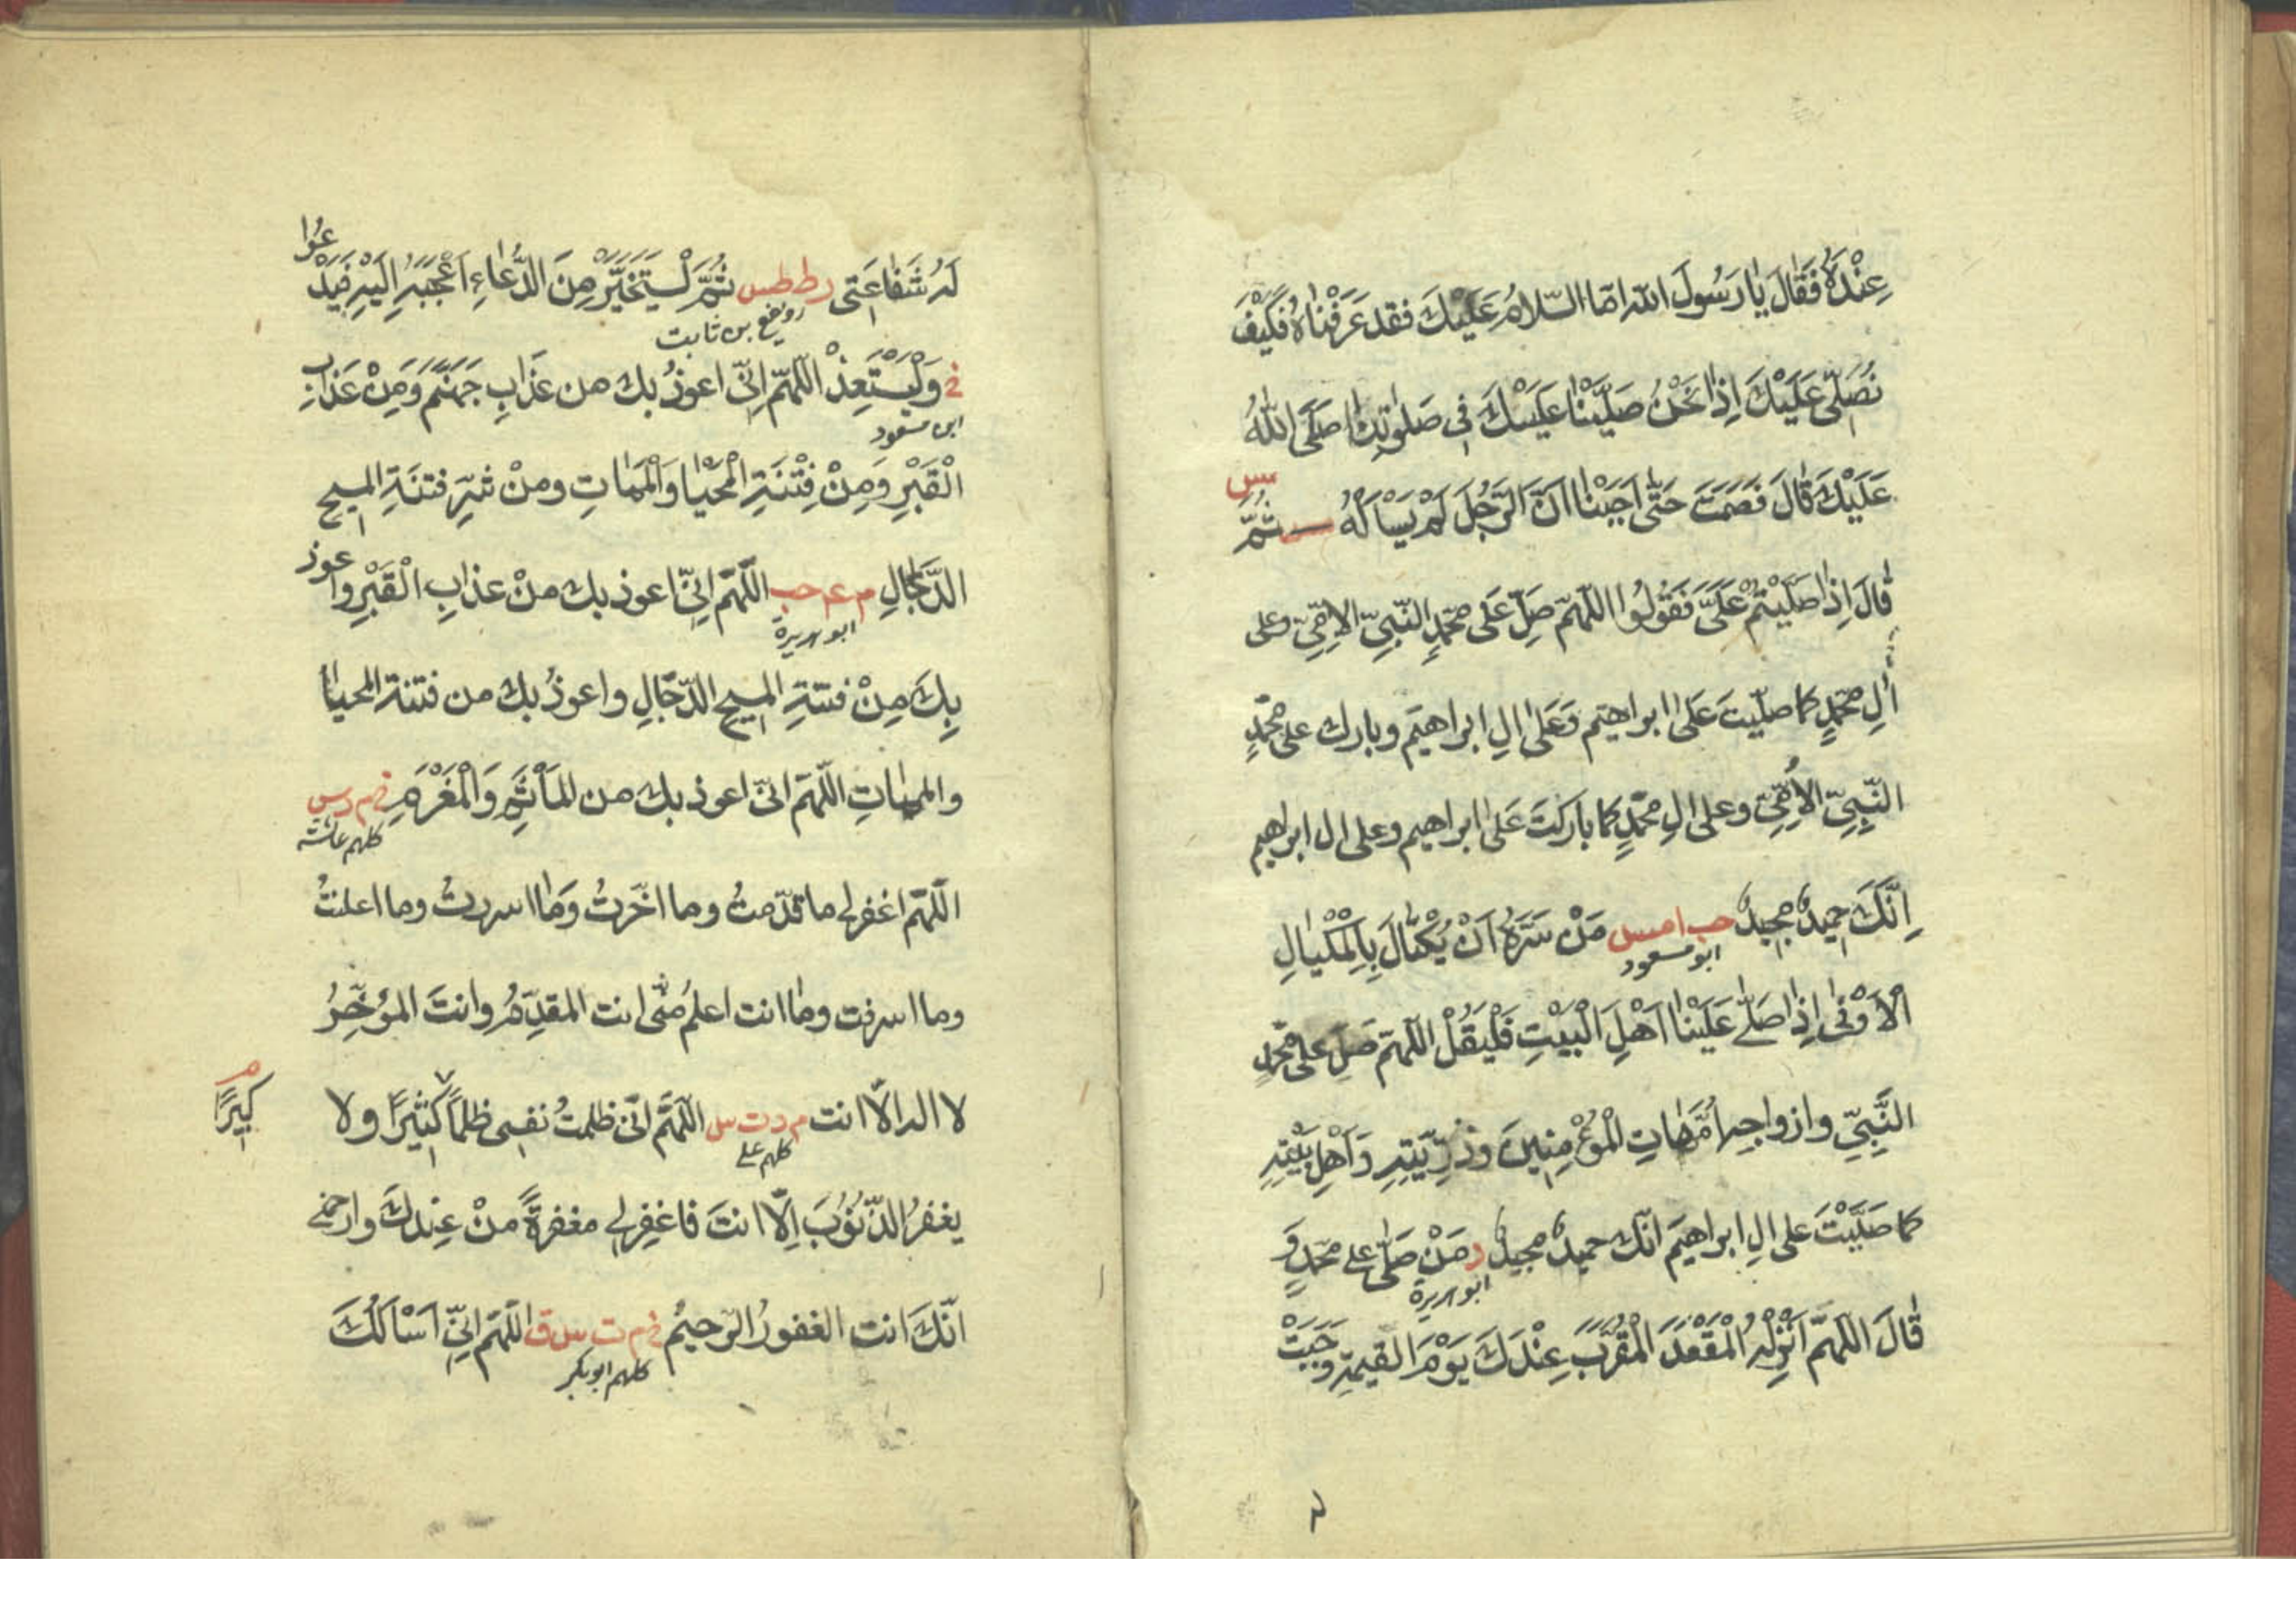 عِنْدَهُ فَقَالَ يَا رَسُولَ اللّٰه امّا السّلامُ عَلَيْكَ فقد عَرَفْنَاهُ فَكَيْفَ
نُصَلّى عَلَيْكَ اِذَا نَحْنُ صَلَّيْنَا عَلَيْكَ فى صَلٰوتِنَا صَلَّى اللّٰهُ
عَلَيْكَ قَالَ فَصَمَتَ حَتّٰى اَحْبَبْنَا اَنَّ الرَّجُلَ لَمْ يَسْاَلْهُ مس ثُمَّ
قَالَ اِذَا صَلَّيْتُمْ عَلَىَّ فَقُولُوا اللّهمّ صَلِّ عَلَى محمّدٍ النّبىّ الامّىّ وعلى
اٰلِ محمّدٍ كما صلّيتَ عَلٰى ابراهيم وَعَلٰى اٰلِ ابراهيَم وبارك على محمّدٍ
النّبِىّ الاُمّىّ وعلى اٰلِ محمّدٍ كما باركتَ عَلٰى ابراهيم وعلى اٰل ابراهيم
اِنَّكَ حميدٌ مجيدٌ حب ا مس مَنْ سَرَّهُ اَنْ يُكْتَالَ بِالْمِكْيَالِ
ابو مسعود
الْاَوْفٰى اِذَا صَلّٰى عَلَيْنَا اَهْلَ الْبَيْتِ فَلْيَقُلْ اللّهمّ صَلِّ على محمّدٍ
النَّبِىِّ وازواجِه اُمَّهَاتِ الْمُؤْمِنِينَ وذُرِّيَّتِهِ وَاَهْلِ بَيْتِهِ
كما صَلَّيْتَ على اٰلِ ابراهيمَ انّك حميدٌ مجيدٌ د مَنْ صَلّٰى على محمّدٍ وَ
ابو هريرة
قَالَ اللّهمَّ اَنْزِلْهُ الْمَقْعَدَ الْمُقَرَّبَ عِنْدَكَ يَوْمَ القيٰمةِ وَجَبَتْ
لَهُ شَفَاعَتِى ر ط طس ثُمَّ لْيَتَخَيَّرْ مِنَ الدُّعَاءِ اَعْجَبَهُ اِلَيْهِ فَيَدْعُوا
رويفع بن ثابت
خ وَلْيَسْتَعِذْ اللّهمّ اِنّىِ اعوذُ بك من عَذَابِ جَهَنَّمَ وَمِنْ عَذَابِ
ابن مسعود
الْقَبْرِ وَمِنْ فِتْنَةِ الْمَحْيَا وَالْمَمَاتِ ومنْ شرِّ فتنَةِ المسيح
الدَّجَّالِ م عه حب اللّهمّ اِنّىِ اعوذ بك منْ عذابِ الْقَبْرِ واعوذ
ابو هريرة
بِكَ مِنْ فتنةِ المسيح الدّجّالِ واعوذُ بك من فتنة المحيا
والمماتِ اللّهمّ انىّ اعوذ بك من المَأْثَمِ وَالْمَغْرَمِ خ م د س
كلهم عائشة
اللّهمّ اغفرلى ما قدّمتُ وما اخّرتُ وَمَا اسررتُ وما اعلنتُ
وما اسرفت وما انت اعلمُ منّى انت المقدِّمُ وانتَ المؤخِّرُ
لا اله الّا انت م د ت س اللّهمّ انىّ ظلمتُ نفسى ظلماً كثيرًا ولا
كلهم على
كبيرًا م
يغفرُ الذّنُوُبَ اِلّا انتَ فاغفِرلى مغفرةً منْ عِنْدكَ وارحمنى
انّكَ انت الغفورُ الرّحيمُ خ م ت س ق اللّهمّ اِنّىِ اَسْاَلُكَ
كلهم ابو بكر